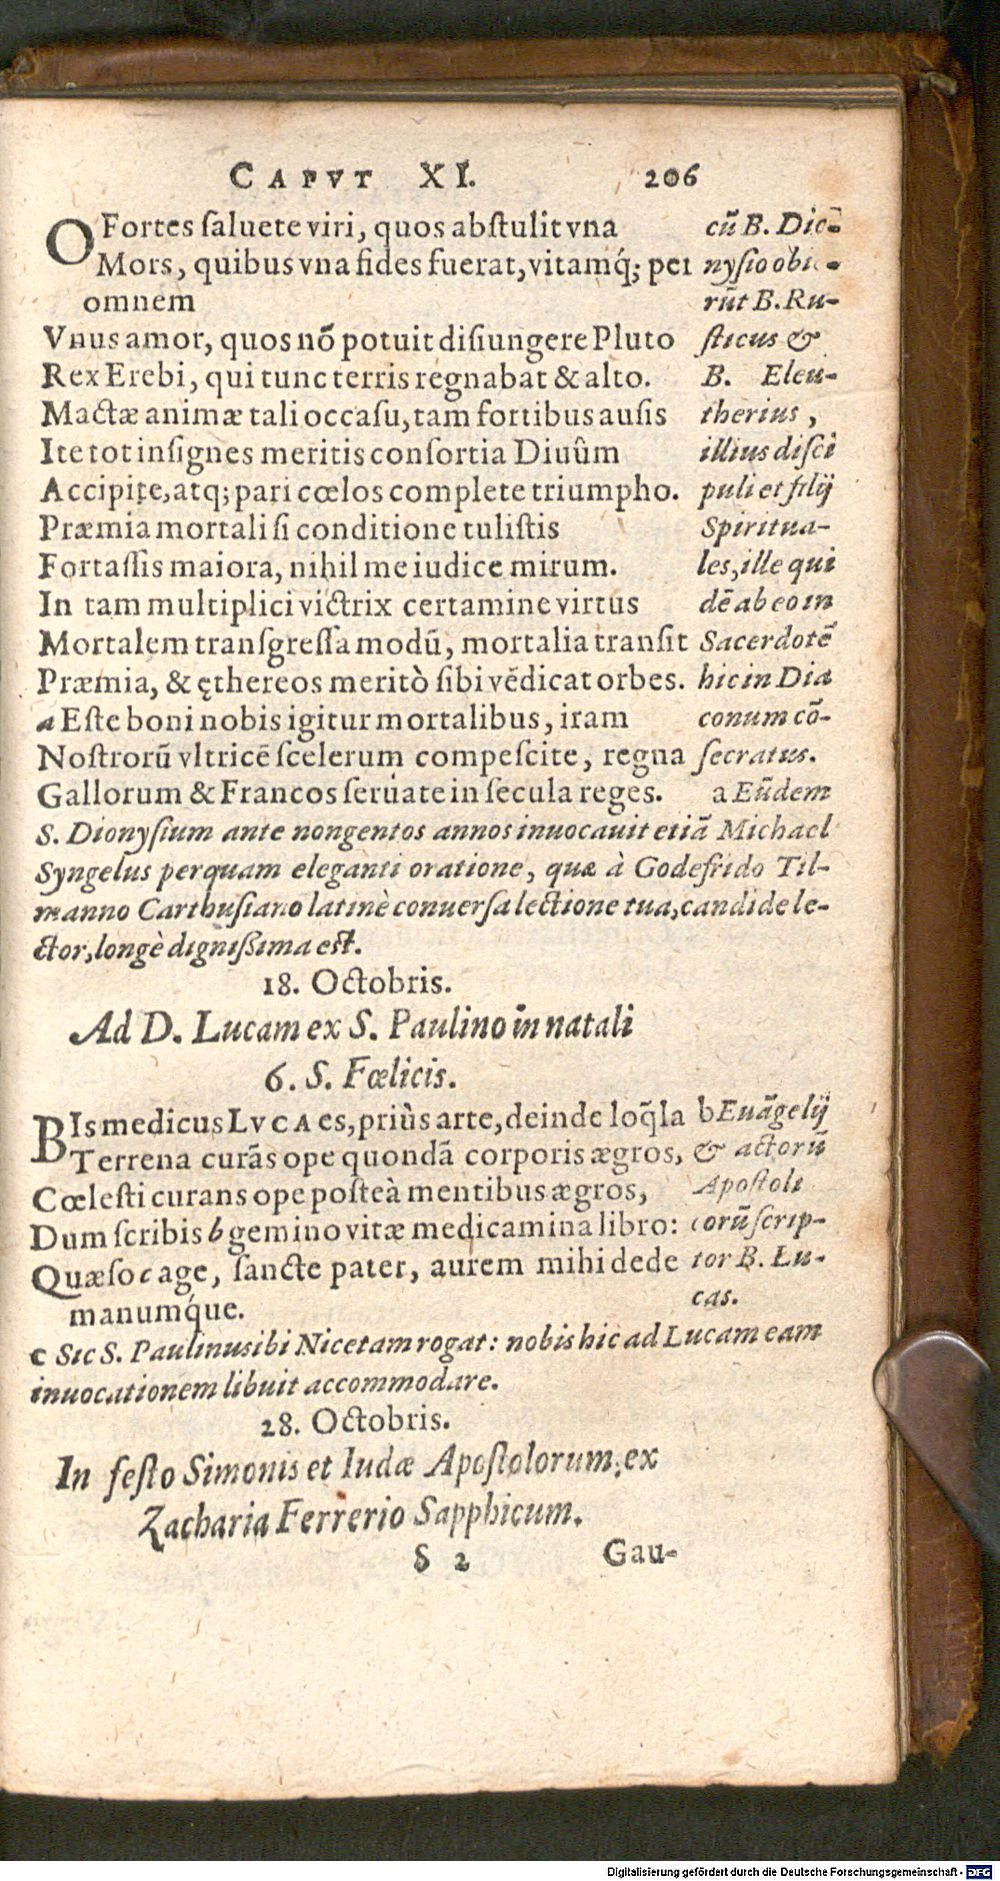 CAPVT XI. 206
O Fortes ſaluete viri, quos abſtulit vna
Mors, quibus vna fides fuerat, vitamq́; per
omnem
Vnus amor, quos nõ potuit diſiungere Pluto
Rex Erebi, qui tunc terris regnabat & alto.
Mactæ animæ tali occaſu, tam fortibus auſis
Ite tot inſignes meritis conſortia Diuûm
Accipite, atq; pari cœlos complete triumpho.
Præmia mortali ſi conditione tuliſtis
Fortaſſis maiora, nihil me iudice mirum.
In tam multiplici victrix certamine virtus
Mortalem transgreſſa modū, mortalia tranſit
Præmia, & ęthereos meritò ſibi vẽdicat orbes.
a Eſte boni nobis igitur mortalibus, iram
Noſtrorū vltricẽ ſcelerum compeſcite, regna
Gallorum & Francos ſeruate in ſecula reges.
cū B. Dio-
nyſio obi-
rūt B. Ru-
ſticus &
B. Eleu-
therius,
illius diſci
puli et filij
Spiritua-
les, ille qui
dẽ ab eo in
Sacerdotẽ
hic in Dia
conum cõ-
ſecratus.
a Eūdem
S. Dionyſium ante nongentos annos inuocauit etiã Michael
Syngelus perquam eleganti oratione, quæ à Godefrido Til-
manno Carthuſiano latinè conuerſa lectione tua, candide le-
ctor, longè digniſsima eſt.
18. Octobris.
Ad D. Lucam ex S. Paulino in natali
6. S. Fœlicis.
BIs medicus LVCA es, priùs arte, deinde loq̃la
Terrena curãs ope quondã corporis ægros,
Cœleſti curans ope poſteà mentibus ægros,
Dum ſcribis b gemino vitæ medicamina libro:
Quæſo c age, ſancte pater, aurem mihi dede
manumq́ue.
b Euãgelij
& actorū
Apoſtoli
corū ſcrip-
tor B. Lu-
cas.
c Sic S. Paulinus ibi Nicetam rogat: nobis hic ad Lucam eam
inuocationem libuit accommodare.
28. Octobris.
In feſto Simonis et Iudæ Apoſtolorum, ex
Zacharia Ferrerio Sapphicum.
S 2 Gau-
Digitalisierung gefördert durch die Deutsche Forschungsgemeinschaft - DFG